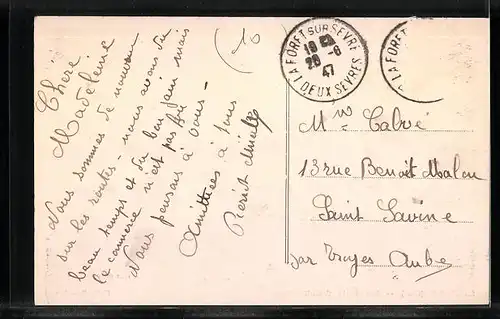 (10
Chère
Madeleine
Nous sommes de nouveau
sur les routes - nous avons du
beau temps et du bon pain mais
le commerce n'est pas fou
Nous pensons à vous -
Amitiées à tous
Pierrot
LA FORET SUR SEVRE
20 -8
47
DEUX SEVRES
LA FORET
Mme Calvé
13 rue Benoît Malon
Saint Savine
par Troyes Aube